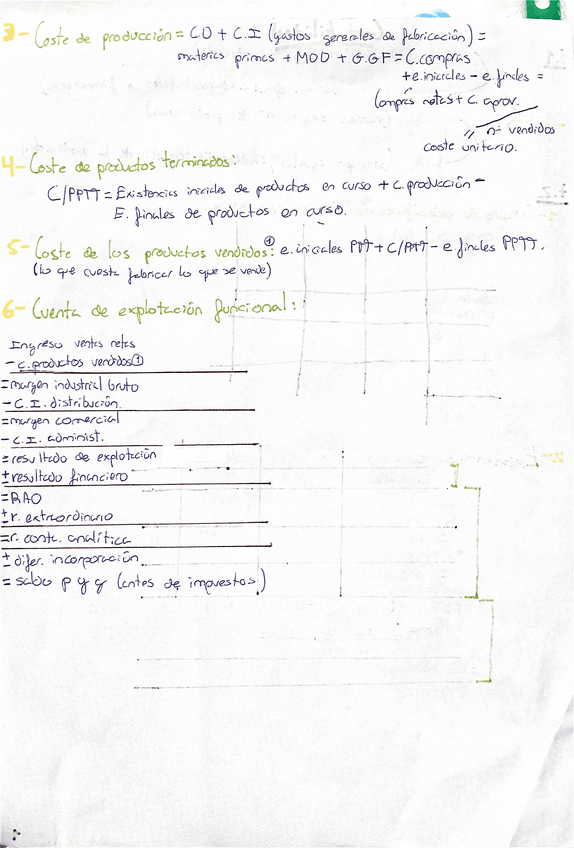 3- Coste de producción = CD + C.I (gastos generales de fabricación) =
materias primas + MOD + G.GF = C.compras
+ e.iniciales - e.finales =
Compras netas + C. aprov.
nº vendidos
coste unitario.
4- Coste de productos terminados:
C/PPTT = Existencias iniciales de productos en curso + C.producción -
E. finales de productos en curso.
5- Coste de los productos vendidos: ① e.iniciales PPTT + C/PPTT - e finales PPTT.
(lo que cuesta fabricar lo que se vende)
6- Cuenta de explotación funcional:
Ingreso ventas netas
- C.productos vendidos ①
= margen industrial bruto
- C.I. distribución.
= margen comercial
- C.I. administ.
= resultado de explotación
± resultado financiero
= BAO
± r. extraordinario
= r. contb. analítica
± difer. incorporación
= saldo p y g (antes de impuestos)